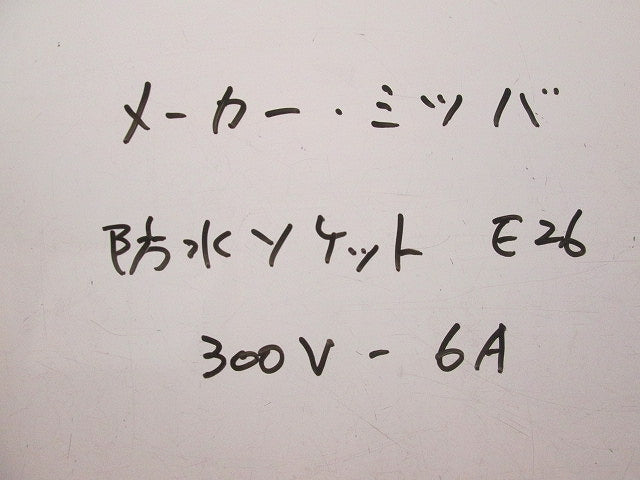 メーカー・ミツバ
防水ソケット E26
300V - 6A